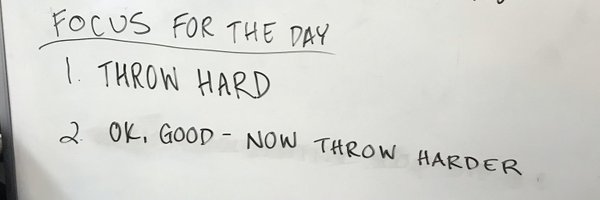 FOCUS FOR THE DAY
1. THROW HARD
2. OK, GOOD - NOW THROW HARDER